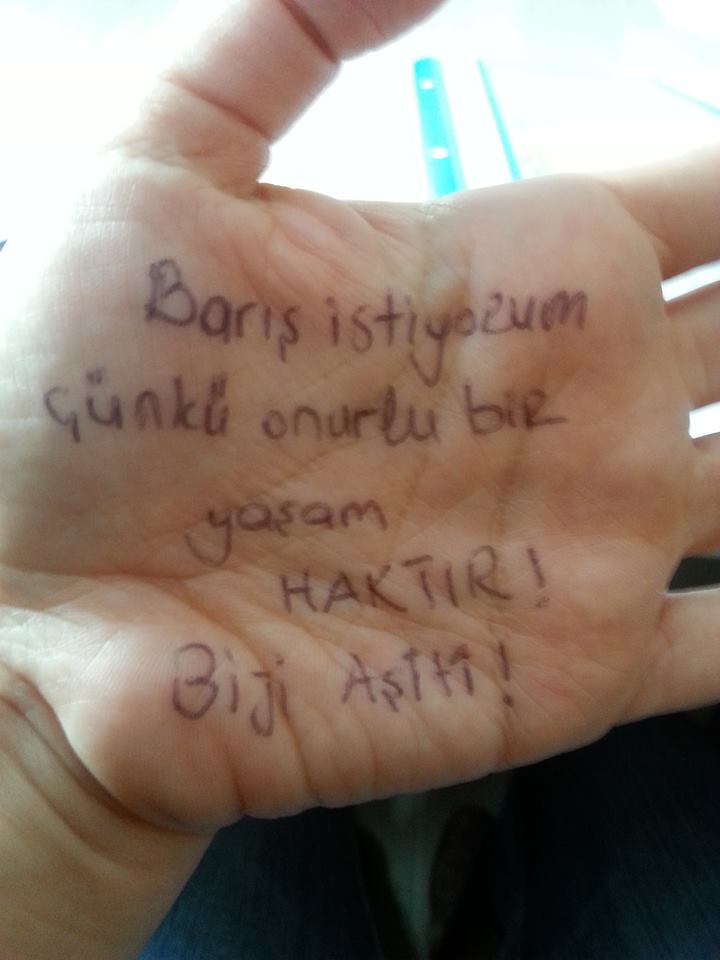 Barış istiyorum
Çünkü onurlu biR
yaşam
HAKTIR!
Biji Aşîtî!